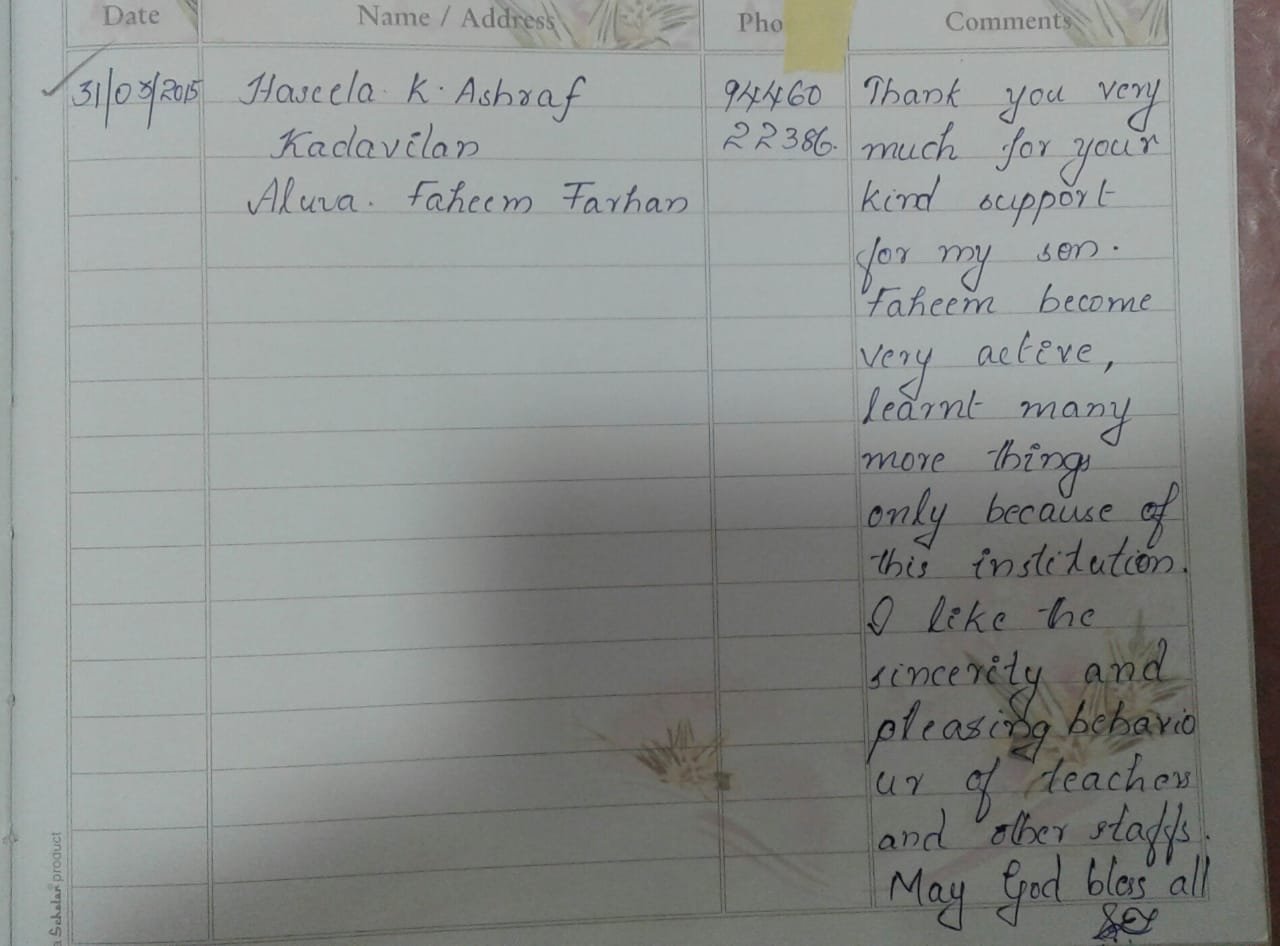 Date Name / Address Pho Comments
31/03/2015 Haseela K. Ashraf 94460 Thank you very
Kadavilan 22386. much for your
Aluva. Faheem Farhan kind support
for my son.
Faheem become
very active,
learnt many
more things
only because of
this institution.
I like the
sincerity and
pleasing behavio
ur of teachers
and other staffs.
May God bless all
a Scholar product